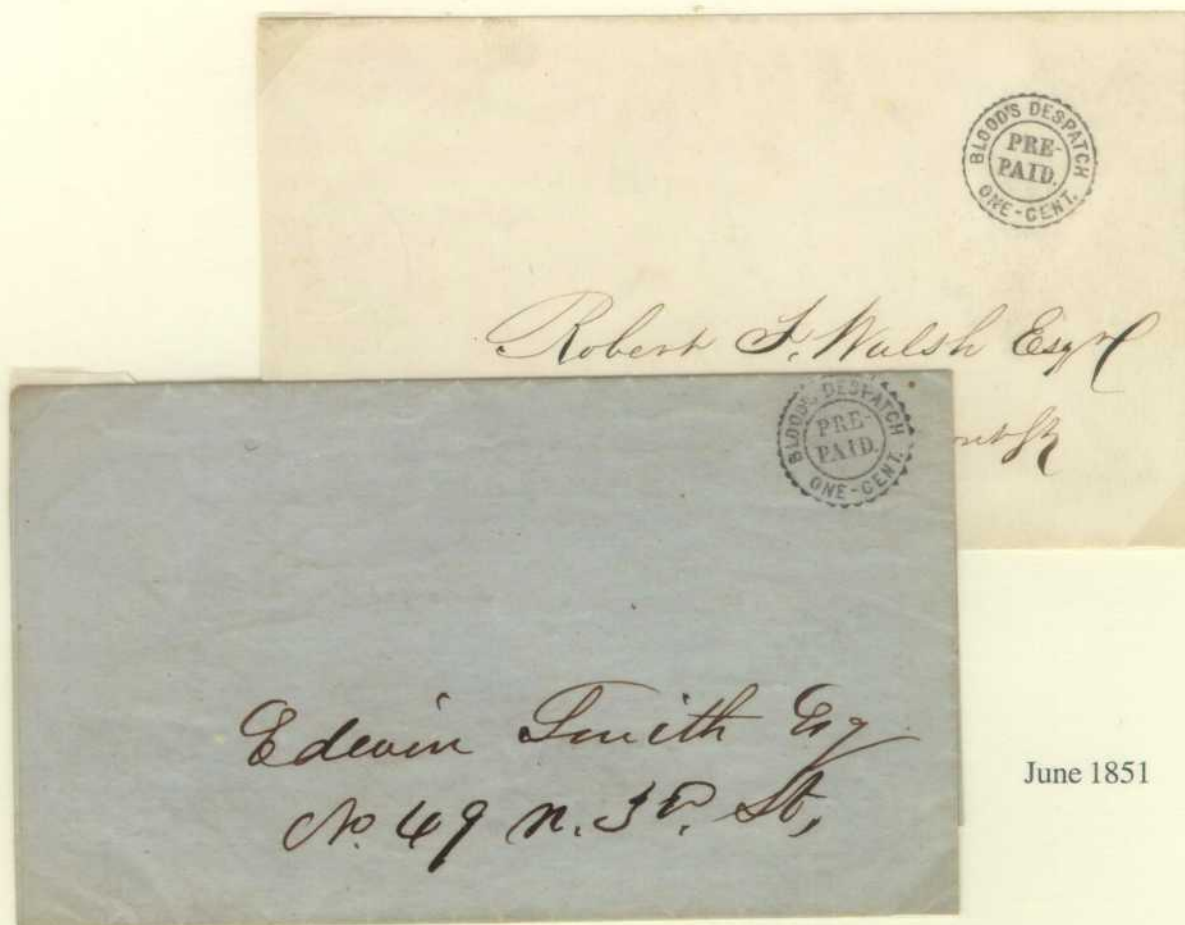 BLOOD'S DESPATCH
PRE-
PAID.
ONE-CENT.
Robert F. Walsh Esqr
BLOOD'S DESPATCH
PRE-
PAID.
ONE-CENT.
Edwin Smith Esq
No. 49 N. 3d. St,
June 1851